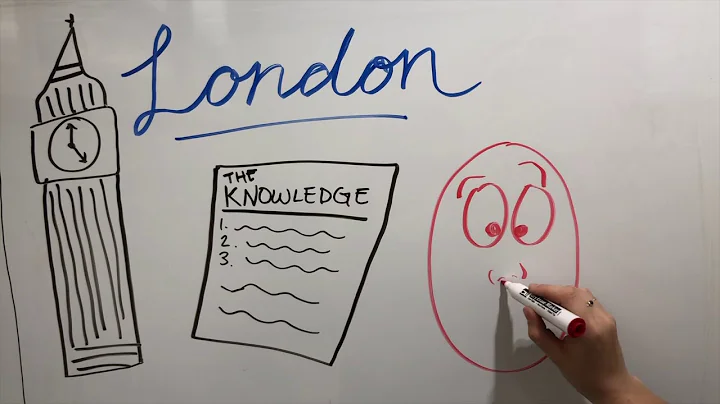 London
THE
KNOWLEDGE
1.
2.
3.